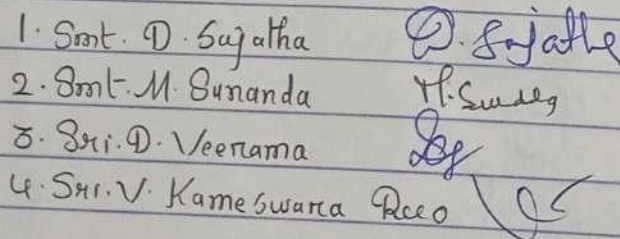 1. Smt. D. Sujatha D. Sujatha
2. Smt. M. Sunanda M.
3. Sri. D. Veerrama
4. Sri. V. Kameswara Rao